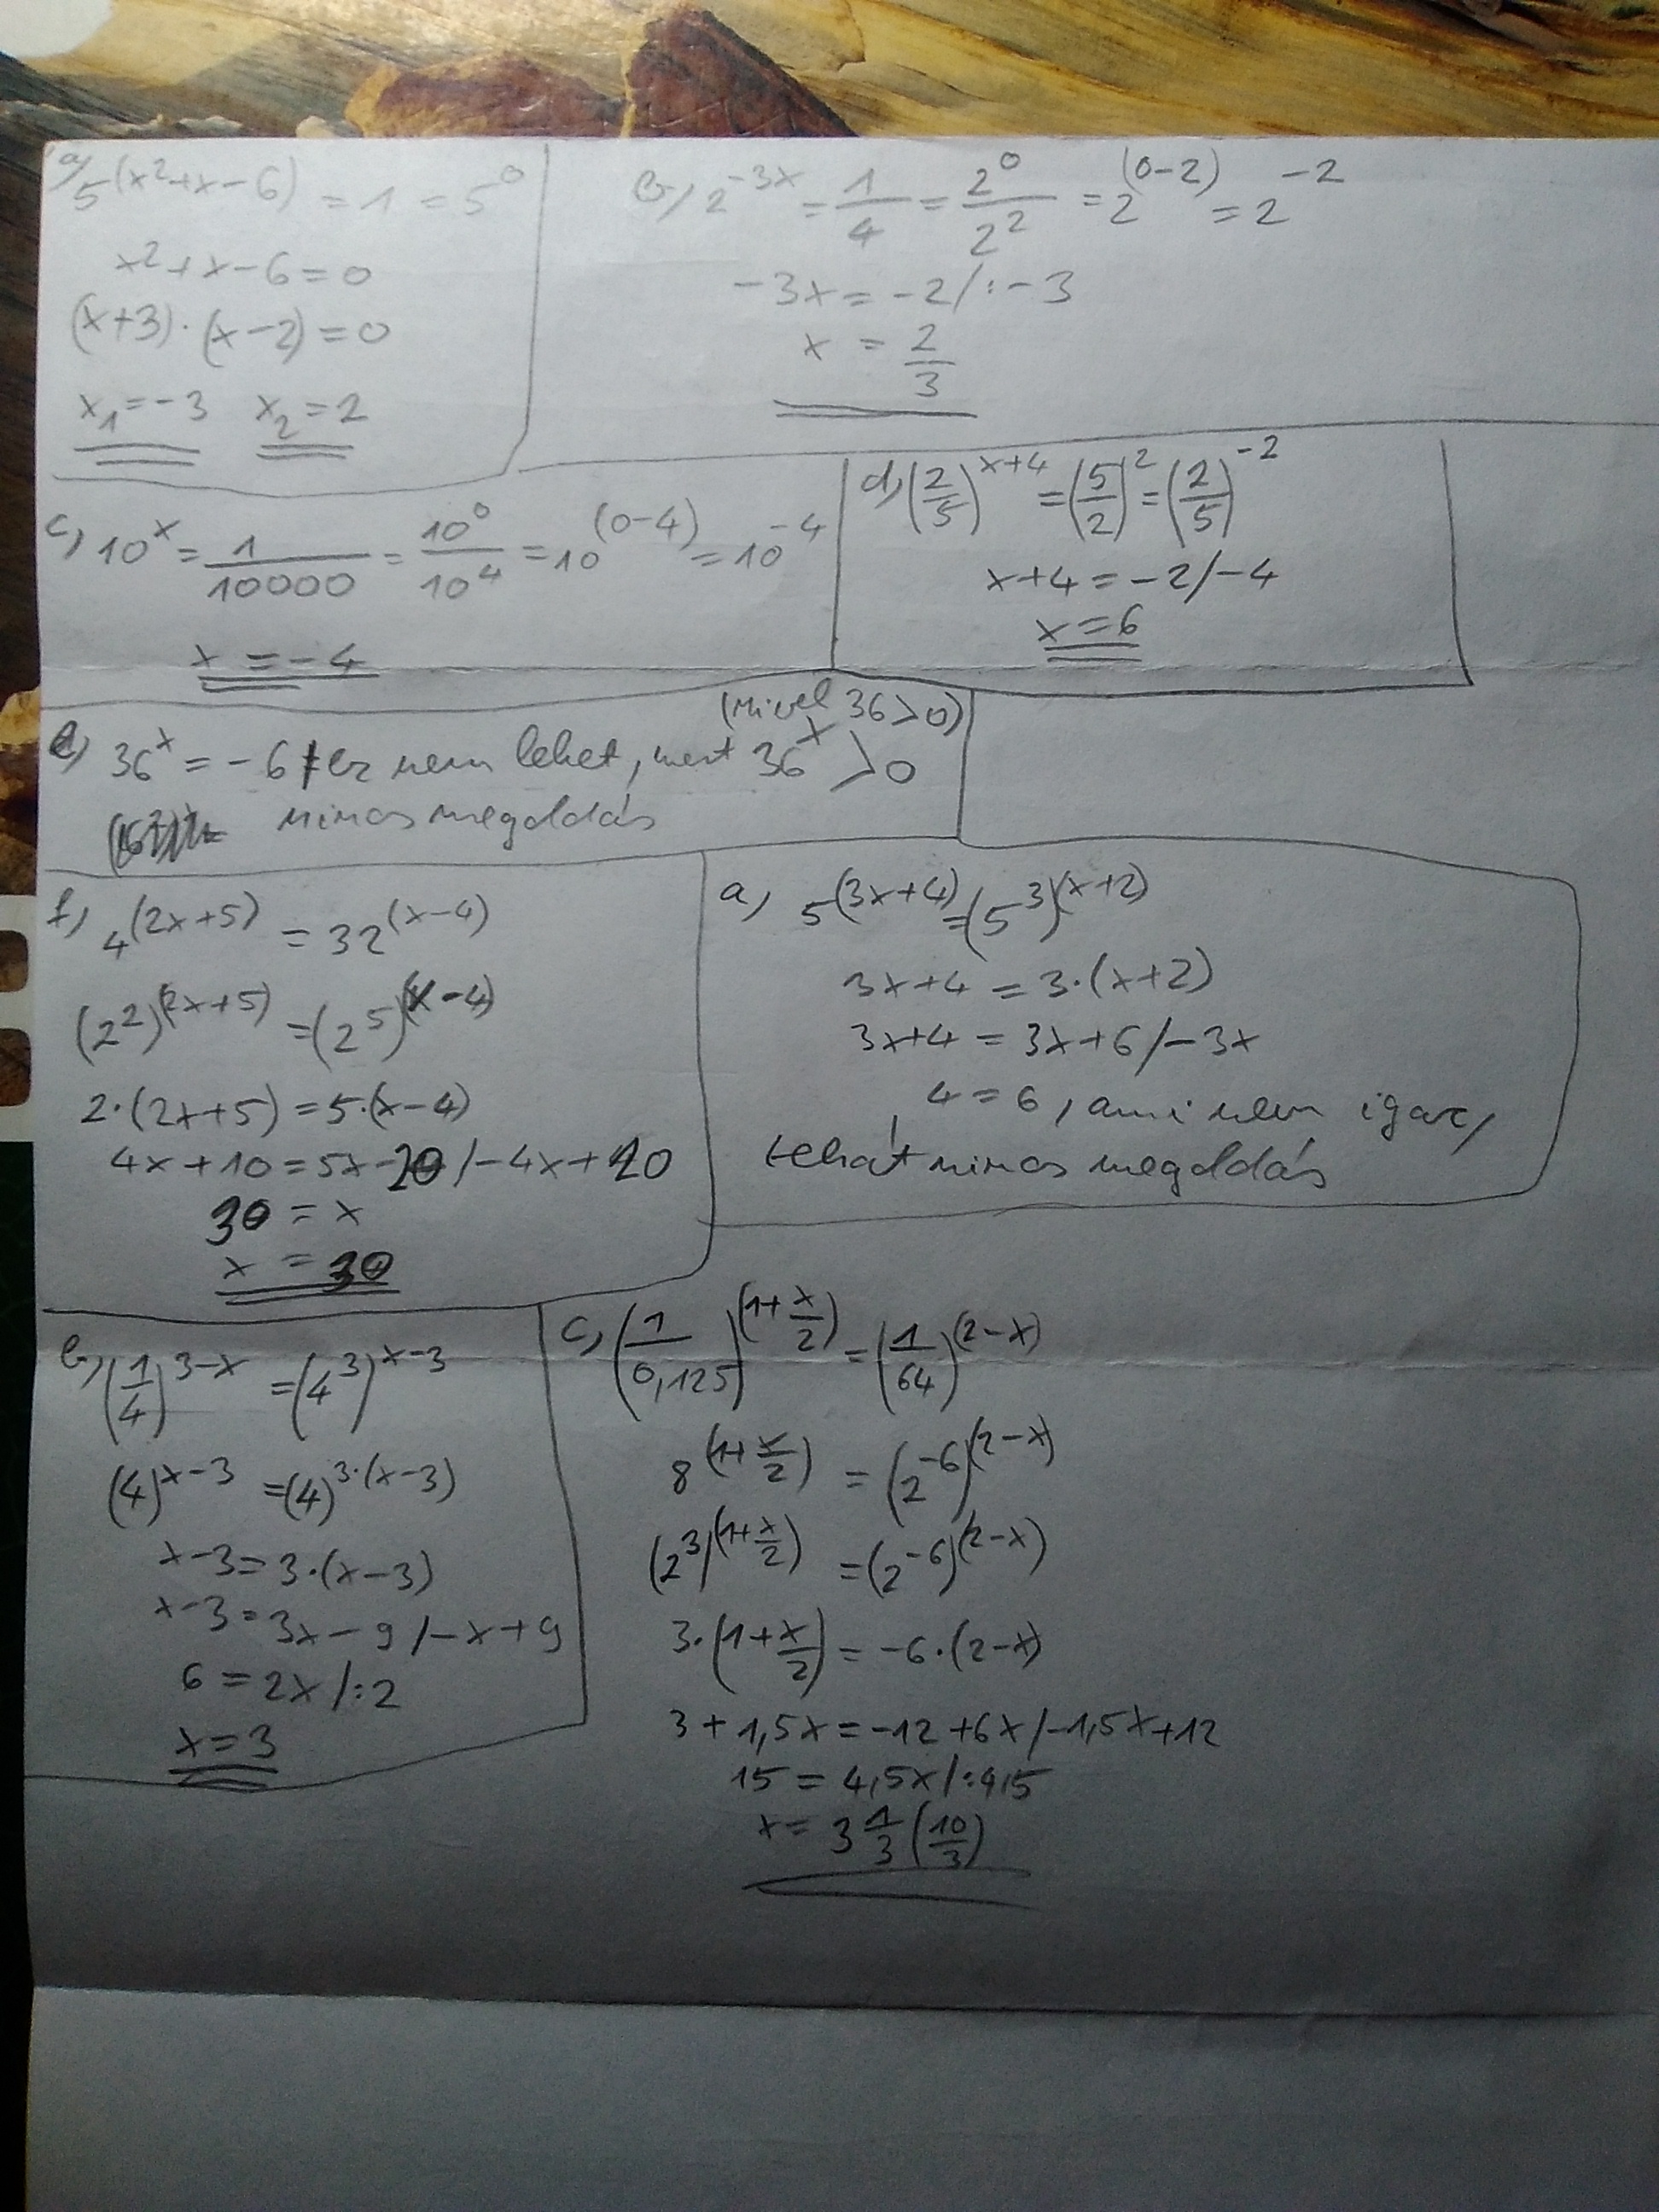 a, 5^(x²+x-6) = 1 = 5^0
x²+x-6=0
(x+3)·(x-2)=0
x₁=-3 x₂=2
b, 2^-3x = 1/4 = 2^0/2^2 = 2^(0-2) = 2^-2
-3x = -2 /:-3
x = 2/3
c, 10^x = 1/10000 = 10^0/10^4 = 10^(0-4) = 10^-4
x = -4
d, (2/5)^x+4 = (5/2)^2 = (2/5)^-2
x+4 = -2 /-4
x = 6
(mivel 36>0)
e, 36^x = -6 ez nem lehet, mert 36^x > 0
nincs megoldás
f, 4^(2x+5) = 32^(x-4)
(2^2)^(2x+5) = (2^5)^(x-4)
2·(2x+5) = 5·(x-4)
4x+10 = 5x-20 /-4x+20
30 = x
x = 30
a, 5^(3x+4) = (5^3)^(x+2)
3x+4 = 3·(x+2)
3x+4 = 3x+6 /-3x
4 = 6, ami nem igaz,
tehát nincs megoldás
b, (1/4)^3-x = (4^3)^x-3
(4)^x-3 = (4)^3·(x-3)
x-3 = 3·(x-3)
x-3 = 3x-9 /-x+9
6 = 2x /:2
x = 3
c, (1/0,125)^(1+x/2) = (1/64)^(2-x)
8^(1+x/2) = (2^-6)^(2-x)
(2^3)^(1+x/2) = (2^-6)^(2-x)
3·(1+x/2) = -6·(2-x)
3+1,5x = -12+6x /-1,5x+12
15 = 4,5x /:4,5
x = 3 1/3 (10/3)